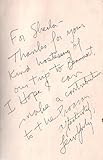 For Sheila
Thanks for your
kind hostessing of
our trip to
I Hope I can
make a contribution
to the